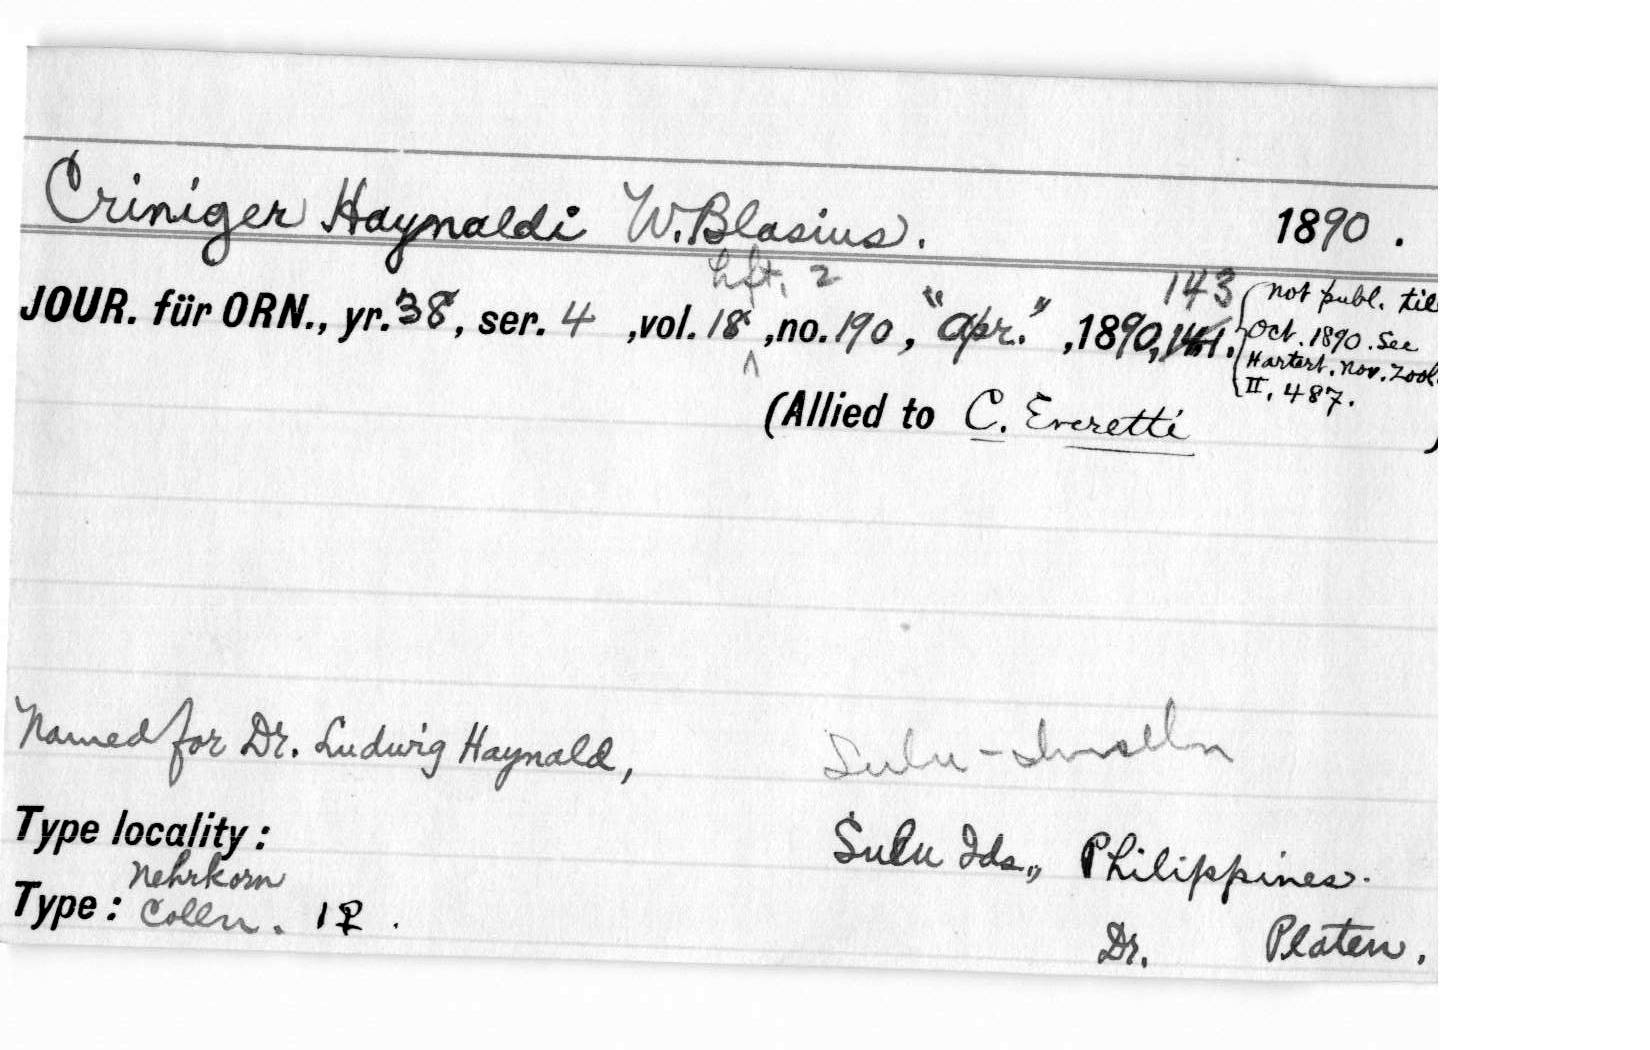 Criniger Haynaldi W. Blasius. 1890.
hft. 2 143
JOUR. für ORN., yr. 38, ser. 4 ,vol. 18 ,no. 190, "Apr." ,1890, 141.
not publ. til
Oct. 1890. See
Hartert. Nov. Zool.
II. 487.
(Allied to C. Everetti )
Named for Dr. Ludwig Haynald,
Sulu-Inseln
Type locality: Sulu Ids., Philippines.
Nehrkorn
Type: Colln. 1♀. Dr. Platen.